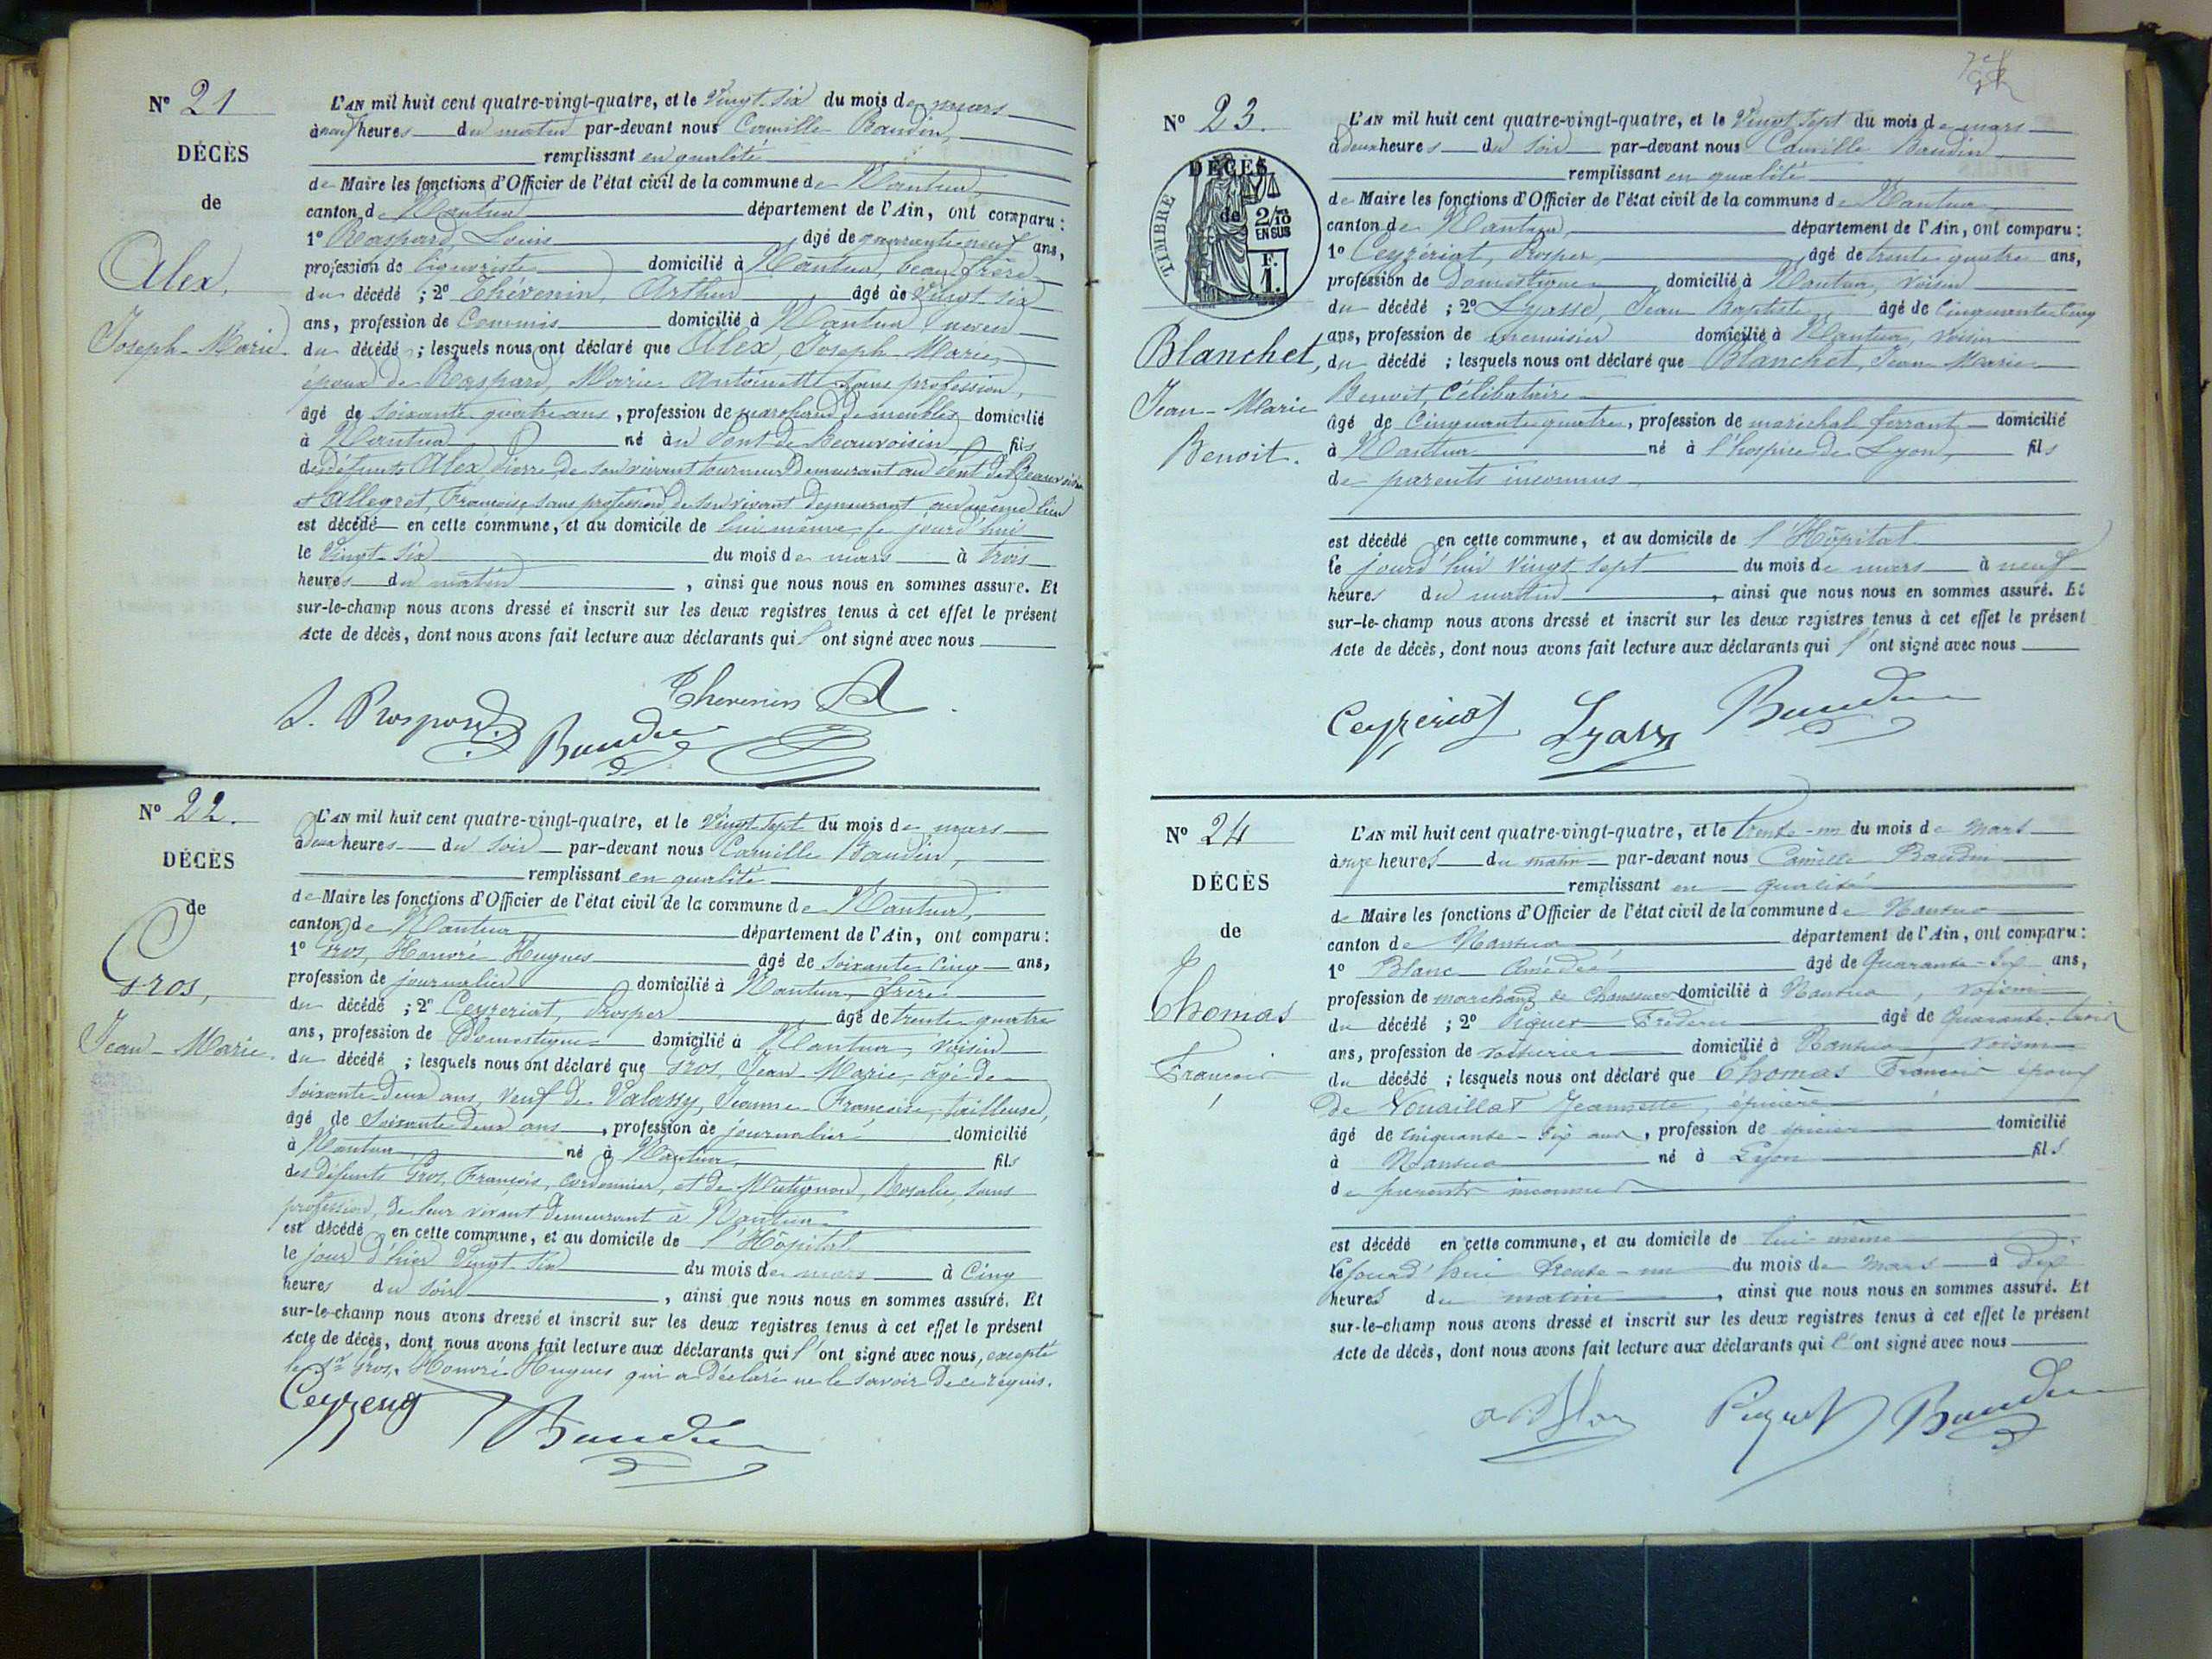 N° 21
DÉCÈS
de
Alex,
Joseph-Marie.
L'AN mil huit cent quatre-vingt-quatre, et le Vingt-six du mois de mars
à neuf heures du matin par-devant nous Camille Baudin,
remplissant en qualité
de Maire les fonctions d'Officier de l'état civil de la commune de Nantua,
canton de Nantua département de l'Ain, ont comparu :
1° Raspard, Louis âgé de quarante-neuf ans,
profession de liquoriste domicilié à Nantua, beau-frère
du décédé ; 2° Thévenin, Arthur âgé de Vingt-six
ans, profession de Commis domicilié à Nantua neveu
du décédé ; lesquels nous ont déclaré que Alex, Joseph-Marie,
époux de Raspard, Marie Antoinette sans profession,
âgé de soixante-quatre ans, profession de marchand de meubles domicilié
à Nantua né au Pont de Beauvoisin fils
des défunts Alex, Pierre de son vivant tourneur demeurant au Pont de Beauvoisin
et Allegret, Françoise, sans profession de son vivant demeurant au même lieu
est décédé en cette commune, et au domicile de lui-même, ce jourd'hui
le Vingt-six du mois de mars à trois
heures du matin, ainsi que nous nous en sommes assuré. Et
sur-le-champ nous avons dressé et inscrit sur les deux registres tenus à cet effet le présent
Acte de décès, dont nous avons fait lecture aux déclarants qui l'ont signé avec nous
Thevenin A
L. Raspard Baudin
N° 22.
DÉCÈS
de
Gros,
Jean-Marie.
L'AN mil huit cent quatre-vingt-quatre, et le Vingt-sept du mois de mars
à deux heures du soir par-devant nous Camille Baudin,
remplissant en qualité
de Maire les fonctions d'Officier de l'état civil de la commune de Nantua,
canton de Nantua département de l'Ain, ont comparu :
1° Gros, Honoré Hugues âgé de soixante-cinq ans,
profession de journalier domicilié à Nantua, frère
du décédé ; 2° Ceyzeriat, Prosper âgé de trente-quatre
ans, profession de Domestique domicilié à Nantua, voisin
du décédé ; lesquels nous ont déclaré que Gros, Jean-Marie, âgé de
soixante-deux ans, veuf de Jeanne Françoise, tailleuse,
âgé de soixante-deux ans, profession de journalier domicilié
à Nantua né à Nantua, fils
des défunts Gros, François, cordonnier, et de Rosalie, sans
profession, de leur vivant demeurant à Nantua
est décédé en cette commune, et au domicile de l'Hôpital
le jour d'hier Vingt-six du mois de mars à Cinq
heures du soir, ainsi que nous nous en sommes assuré. Et
sur-le-champ nous avons dressé et inscrit sur les deux registres tenus à cet effet le présent
Acte de décès, dont nous avons fait lecture aux déclarants qui l'ont signé avec nous, excepté
le sr Gros, Honoré Hugues qui a déclaré ne le savoir de ce requis.
Baudin
N° 23.
DÉCÈS
de
TIMBRE
2/10
EN SUS
F.
1.
Blanchet,
Jean-Marie
Benoit.
L'AN mil huit cent quatre-vingt-quatre, et le Vingt-sept du mois de mars
à deux heures du soir par-devant nous Camille Baudin,
remplissant en qualité
de Maire les fonctions d'Officier de l'état civil de la commune de Nantua
canton de Nantua, département de l'Ain, ont comparu :
1° Ceyzériat, Prosper, âgé de trente-quatre ans,
profession de Domestique domicilié à Nantua, voisin
du décédé ; 2° Lyasse, Jean Baptiste âgé de Cinquante-cinq
ans, profession de menuisier domicilié à Nantua, voisin
du décédé ; lesquels nous ont déclaré que Blanchet, Jean Marie
Benoit, célibataire
âgé de Cinquante-quatre, profession de maréchal ferrant domicilié
à Nantua né à l'hospice de Lyon, fils
de parents inconnus
est décédé en cette commune, et au domicile de l'Hôpital
le jourd'hui vingt-sept du mois de mars à neuf
heures du matin, ainsi que nous nous en sommes assuré. Et
sur-le-champ nous avons dressé et inscrit sur les deux registres tenus à cet effet le présent
Acte de décès, dont nous avons fait lecture aux déclarants qui l'ont signé avec nous
Ceyzériat Lyasse Baudin
N° 24
DÉCÈS
de
Thomas
François
L'AN mil huit cent quatre-vingt-quatre, et le Trente-un du mois de Mars
à onze heures du matin par-devant nous Camille Baudin
remplissant en qualité
de Maire les fonctions d'Officier de l'état civil de la commune de Nantua
canton de Nantua département de l'Ain, ont comparu :
1° Blanc Amédée âgé de Quarante-six ans,
profession de marchand de chaussures domicilié à Nantua, voisin
du décédé ; 2° Piquet Frédéric âgé de Quarante-trois
ans, profession de voiturier domicilié à Nantua voisin
du décédé ; lesquels nous ont déclaré que Thomas François époux
de Vouaillat Jeannette, épicière
âgé de cinquante-six ans, profession de épicier domicilié
à Nantua né à Lyon fils
de parents inconnus
est décédé en cette commune, et au domicile de lui-même
le jourd'hui trente-un du mois de Mars à dix
heures du matin, ainsi que nous nous en sommes assuré. Et
sur-le-champ nous avons dressé et inscrit sur les deux registres tenus à cet effet le présent
Acte de décès, dont nous avons fait lecture aux déclarants qui l'ont signé avec nous
Piquet Baudin